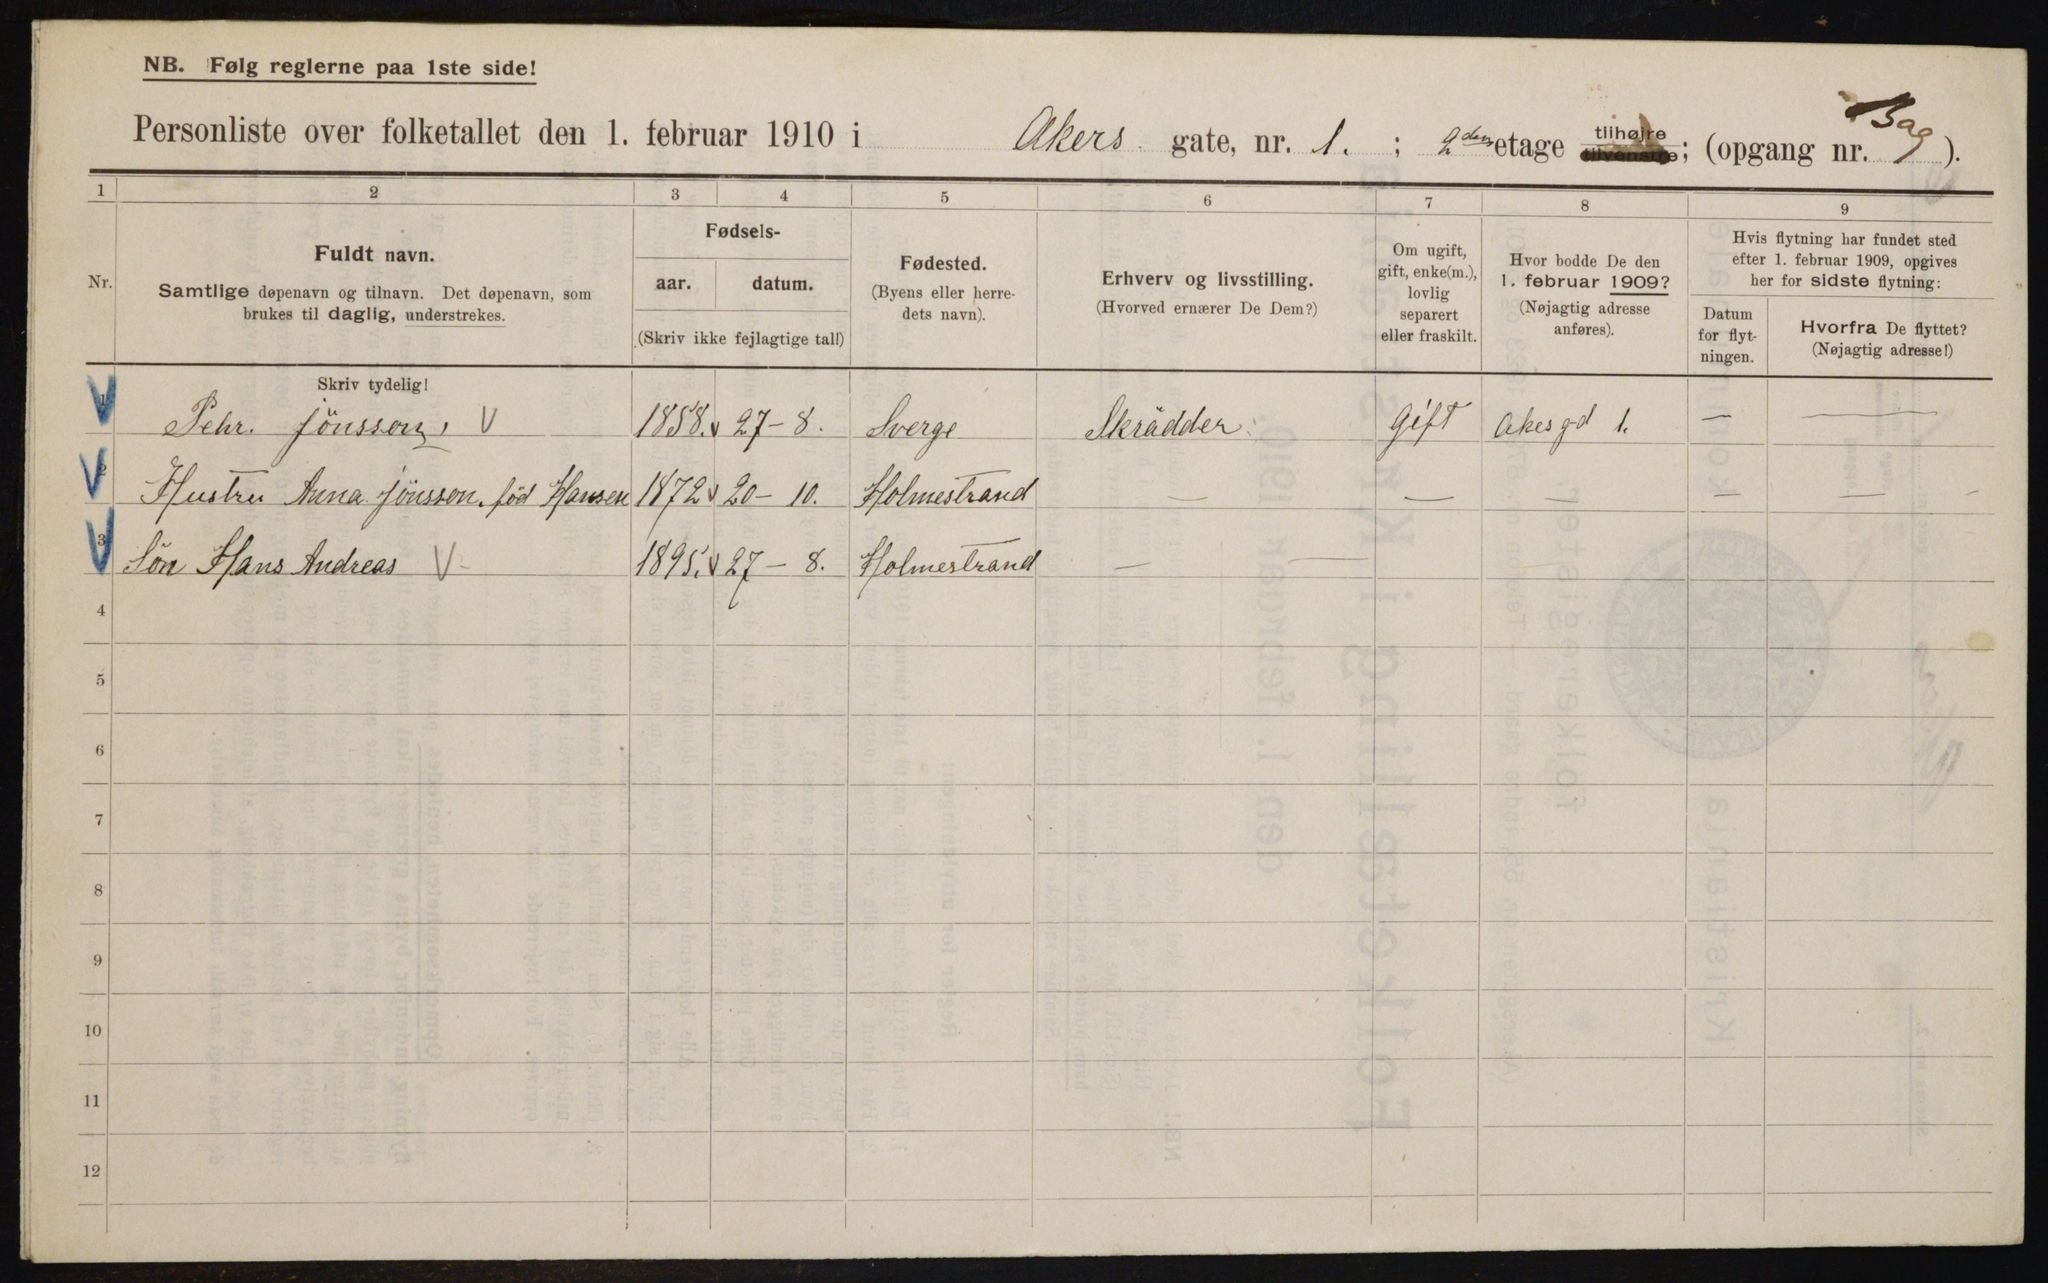 NB. Følg reglerne paa 1ste side!
Personliste over folketallet den 1. februar 1910 i Akers gate, nr. 1. ; 2den etage tilhøjre tilvenstre; (opgang nr. Bag ).
1 2 3 4 5 6 7 8 9
Nr.
Fuldt navn.
Samtlige døpenavn og tilnavn. Det døpenavn, som
brukes til daglig, understrekes.
Fødsels-
aar. datum.
(Skriv ikke fejlagtige tal!)
Fødested.
(Byens eller herre-
dets navn).
Erhverv og livsstilling.
(Hvorved ernærer De Dem?)
Om ugift,
gift, enke(m.),
lovlig
separert
eller fraskilt.
Hvor bodde De den
1. februar 1909?
(Nøjagtig adresse
anføres).
Hvis flytning har fundet sted
efter 1. februar 1909, opgives
her for sidste flytning:
Datum
for flyt-
ningen.
Hvorfra De flyttet?
(Nøjagtig adresse!)
Skriv tydelig!
1 Pehr. Jönsson, V 1858. 27-8. Sverge Skrädder Gift Akesgd 1. — —
2 Hustru Anna Jönsson, föd Hansen 1872 20-10. Holmestrand — — — — —
3 Sön Hans Andreas V 1895. 27-8. Holmestrand — —
4
5
6
7
8
9
10
11
12